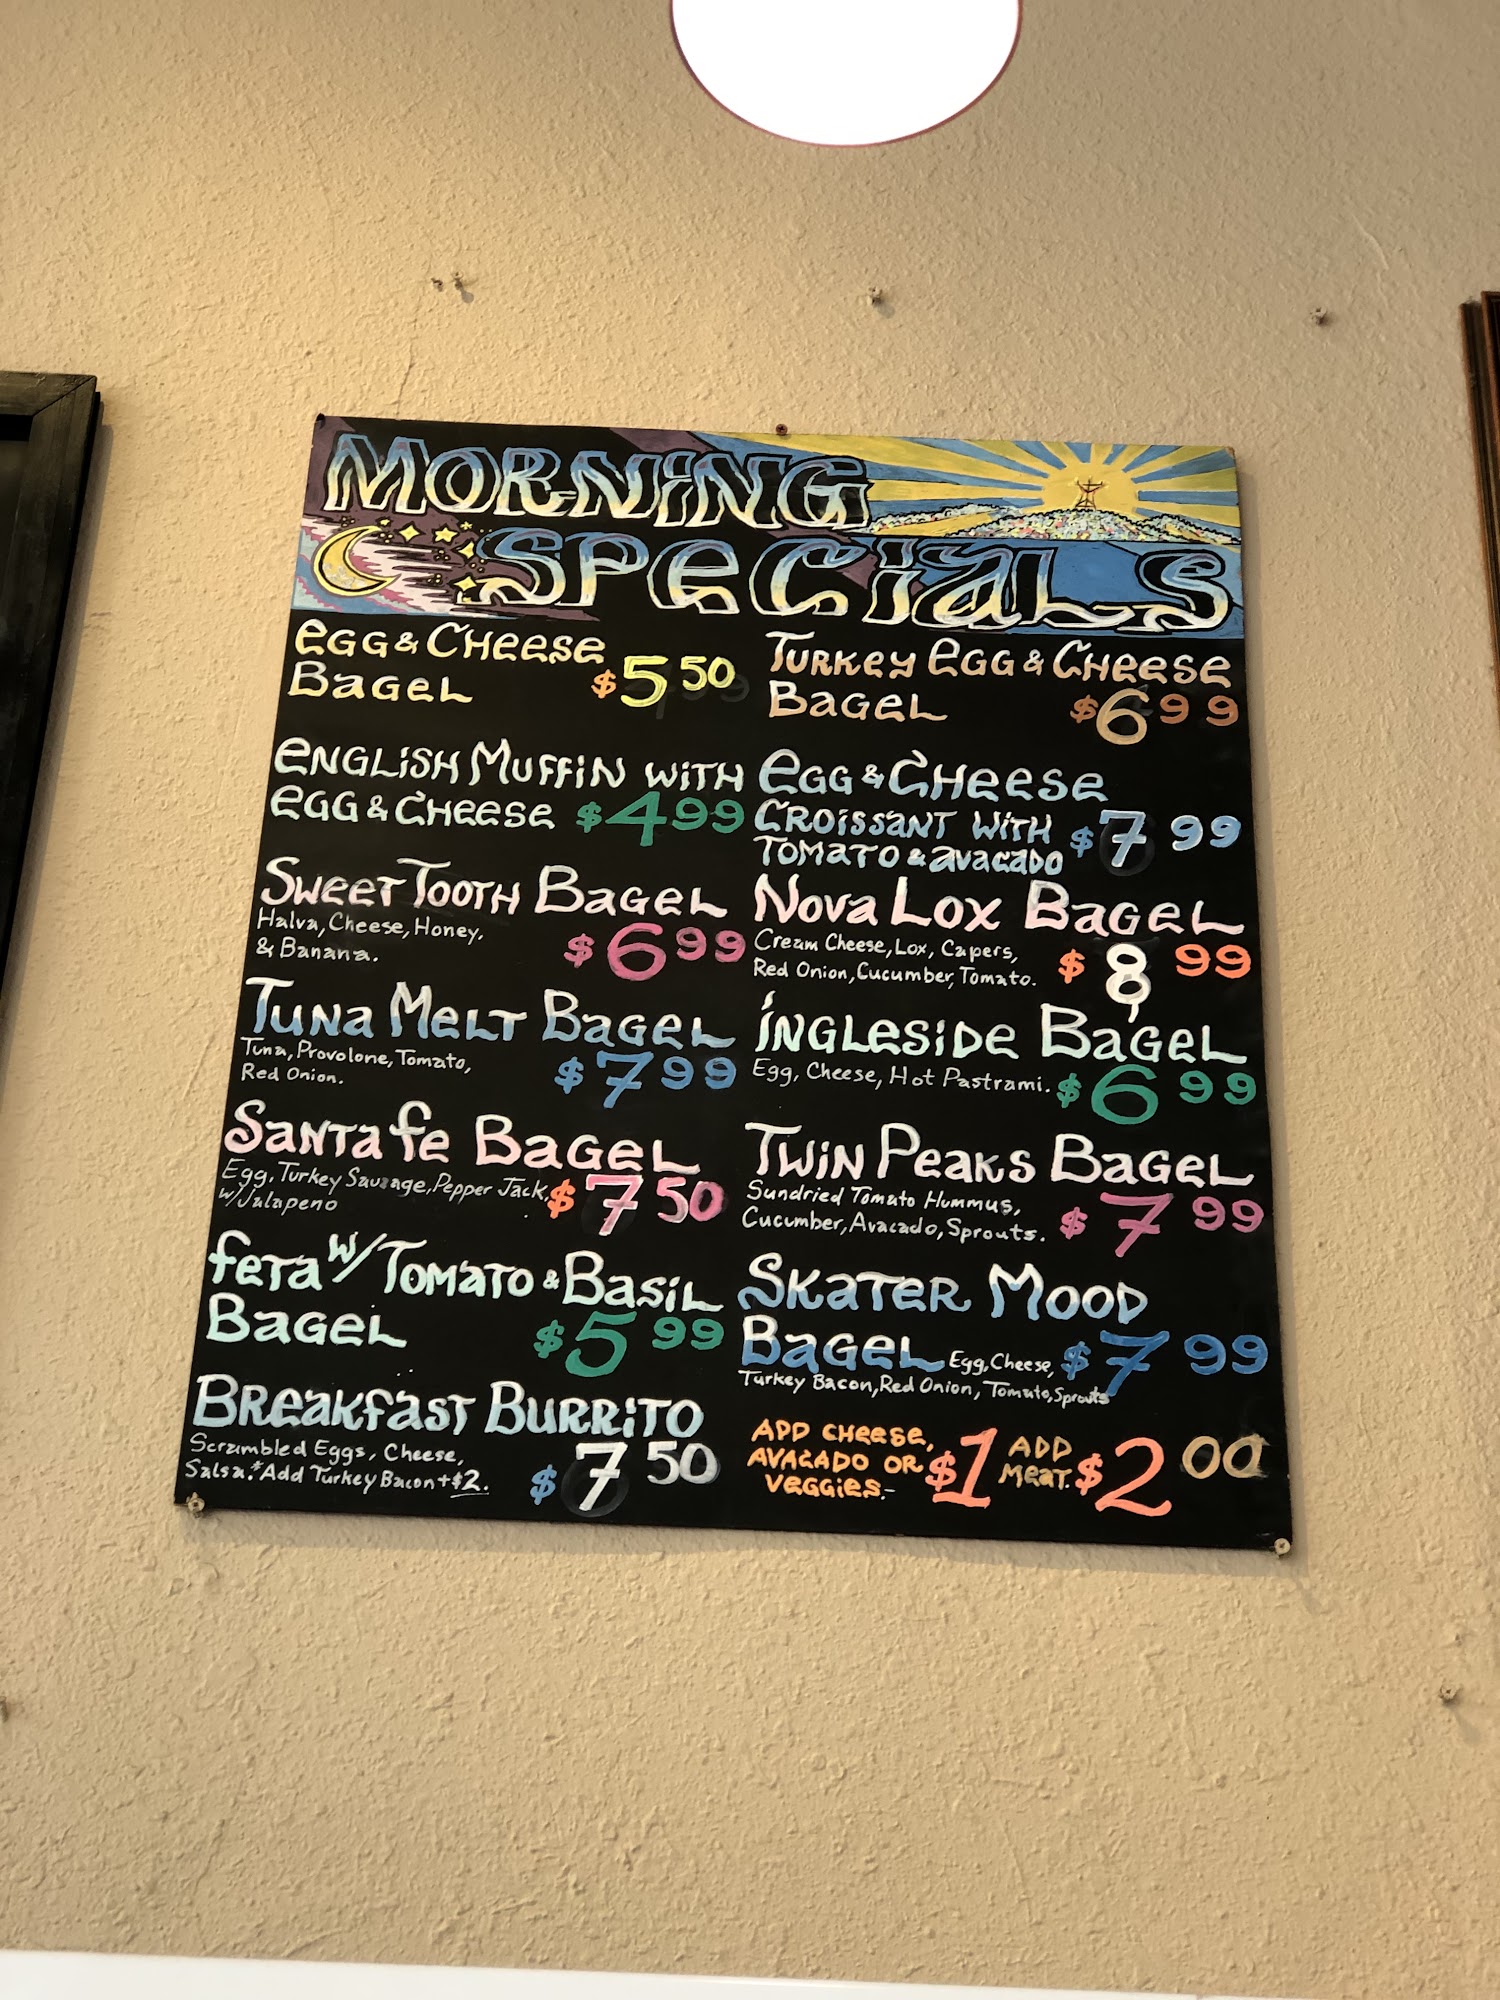 MORNING
SPECIALS
EGG & CHEESE
BAGEL $5 50
ENGLISH MUFFIN WITH
EGG & CHEESE $4 99
SWEET TOOTH BAGEL
Halva, Cheese, Honey,
& Banana. $6 99
TUNA MELT BAGEL
Tuna, Provolone, Tomato,
Red Onion. $7 99
SANTA fe BAGEL
Egg, Turkey Sausage, Pepper Jack,
w/Jalapeno $7 50
feTA W/ TOMATO & BASIL
BAGEL $5 99
BREAKFAST BURRITO
Scrambled Eggs, Cheese,
Salsa.*Add Turkey Bacon+$2. $7 50
TURKEY EGG & CHEESE
BAGEL $6 99
EGG & CHEESE
CROISSANT WITH $7 99
TOMATO & AVACADO
NOVA LOX BAGEL
Cream Cheese, Lox, Capers,
Red Onion, Cucumber, Tomato. $8 99
INGLESIDE BAGEL
Egg, Cheese, Hot Pastrami. $6 99
TWIN PEAKS BAGEL
Sundried Tomato Hummus,
Cucumber, Avacado, Sprouts. $7 99
SKATER MOOD
BAGEL Egg, Cheese, $7 99
Turkey Bacon, Red Onion, Tomato, Sprouts
ADD CHEESE,
AVACADO OR $1
VEGGIES.-
ADD
MEAT. $2 00